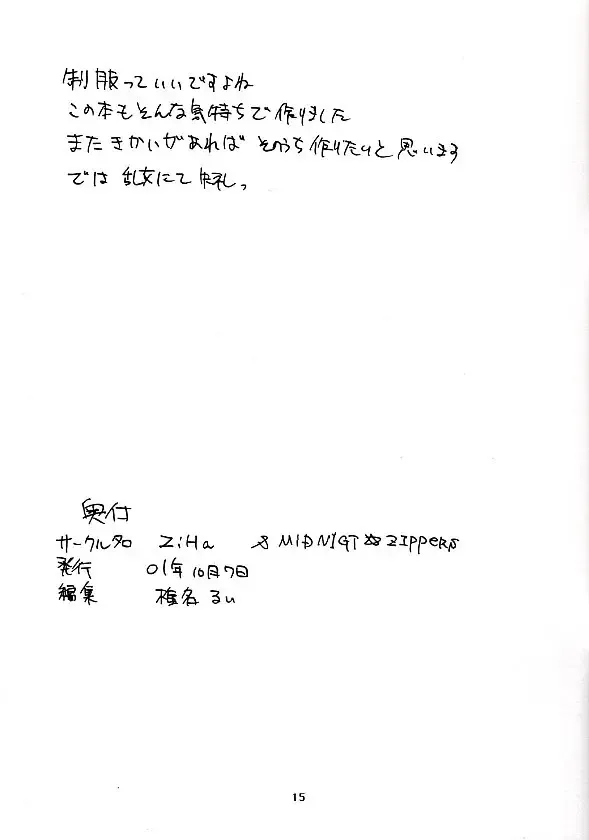 制服っていいですよね
この本もそんな気持ちで作りました
またきかいがあれば そのうち作りたいと思います
では 乱文にて失礼。
奥付
サークル名 ZiHa & MIDNIGT☆ZIPPERS
発行 01年10月7日
編集 椎名るい
15